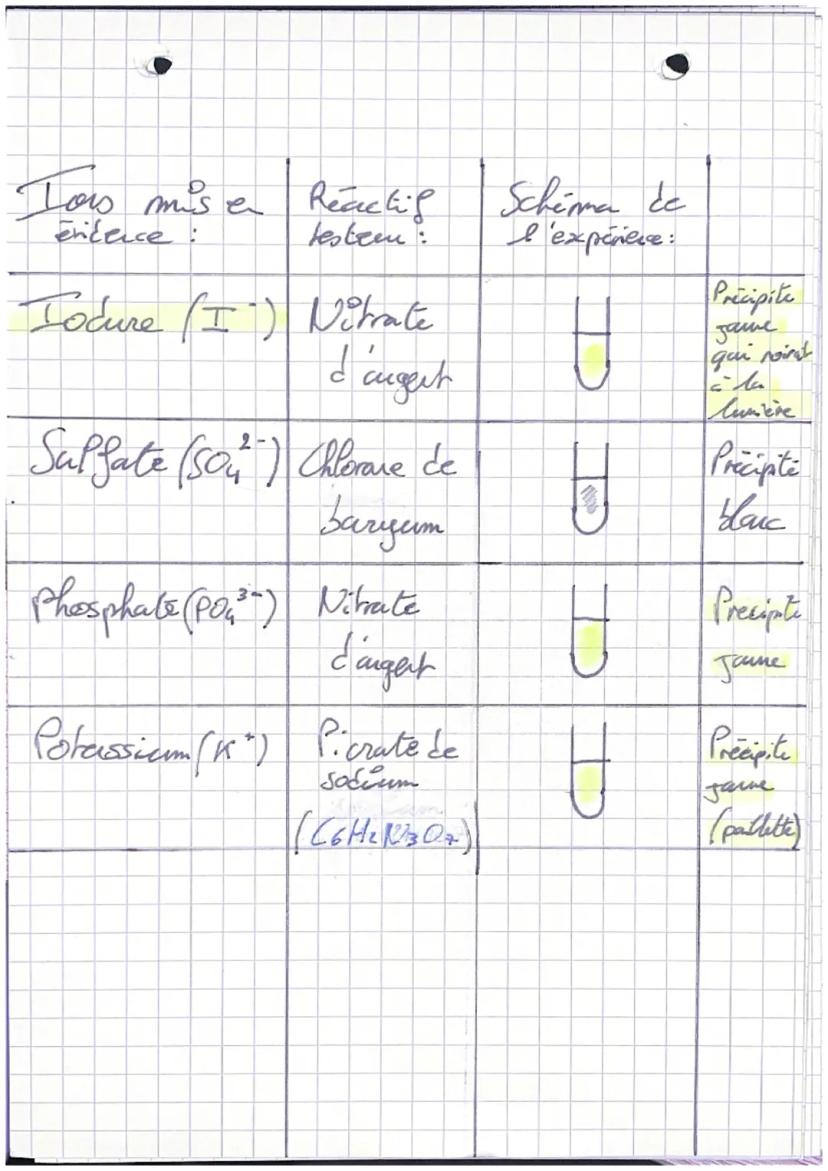 Ions mis en
évidence :
Réactif
testeur :
Schéma de
l'expérience :
Iodure (I⁻)
Nitrate
d'argent
Précipité
jaune
qui noircit
à la
lumière
Sulfate (SO₄²⁻)
Chlorure de
baryum
Précipité
blanc
Phosphate (PO₄³⁻)
Nitrate
d'argent
Précipité
jaune
Potassium (K⁺)
Picrate de
sodium
(C₆H₂N₃O₇)
Précipité
jaune
(paillette)